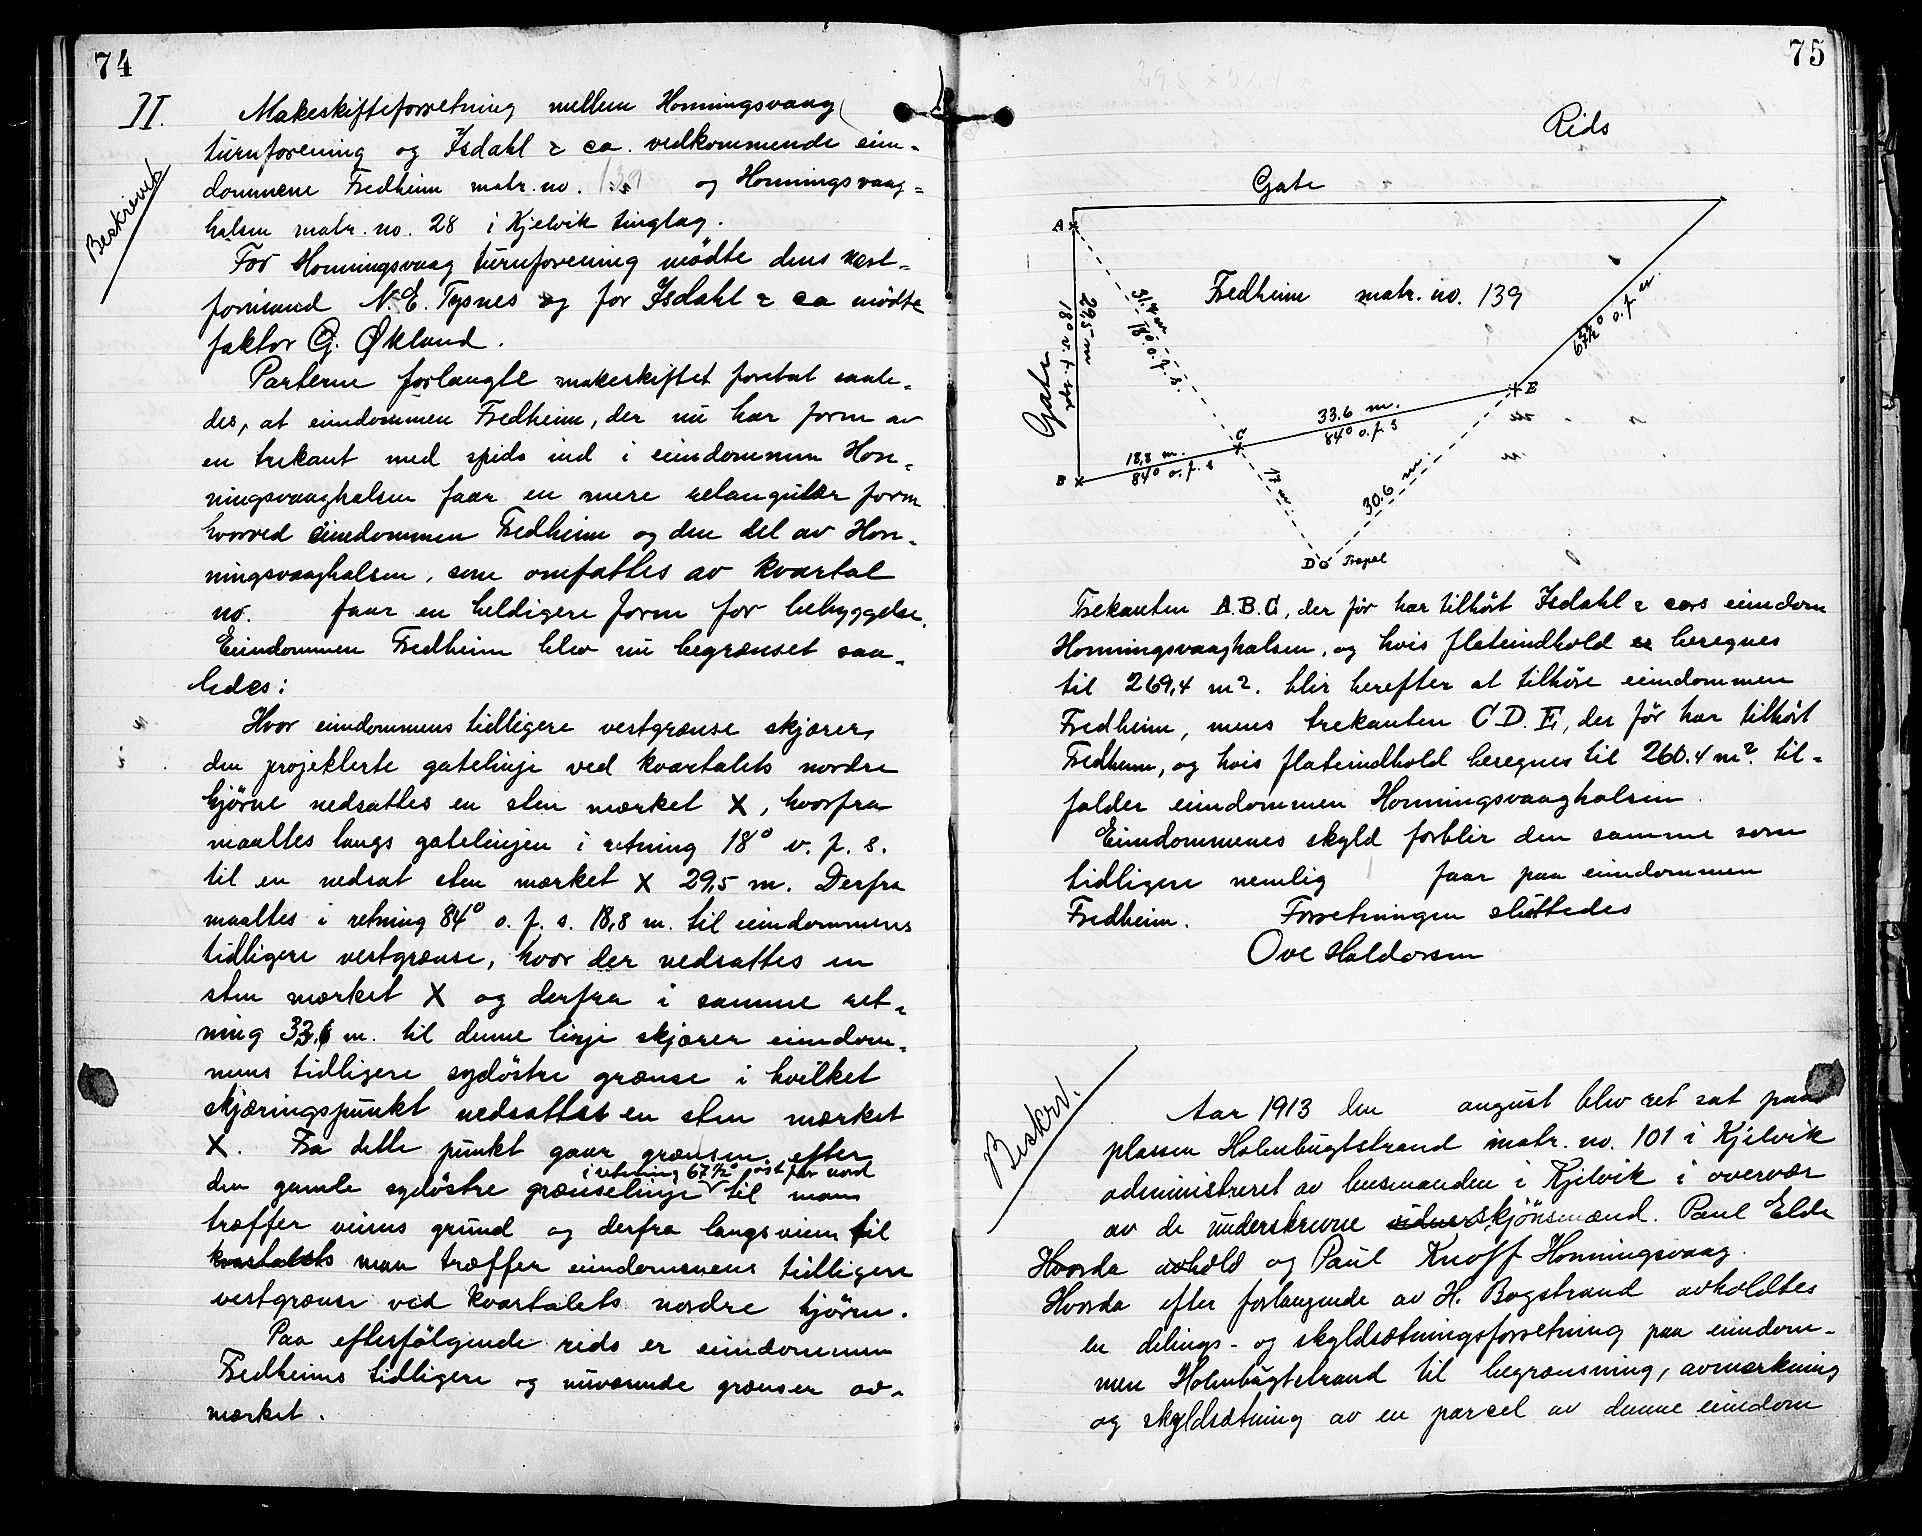 74
II.
Beskrevet
Makeskifteforretning mellem Honningsvaag
turnforening og Isdahl & co. vedkommende eien-
dommene Fredheim matr. no. 139 og Honningsvaag-
halsen matr. no. 28 i Kjelvik tinglag.
For Honningsvaag turnforening mødte dens næst-
formand N. E. Tysnes og for Isdahl & co mødte
faktor G. Økland.
Parterne forlangte makeskiftet foretat saale-
des, at eiendommen Fredheim, der nu har form av
en trekant med spids ind i eiendommen Hon-
ningsvaaghalsen faar en mere retangulær form
hvorved eiendommen Fredheim og den del av Hon-
ningsvaaghalsen, som omfattes av kvartal
no. faar en heldigere form for bebyggelse.
Eiendommen Fredheim blev nu begrænset saa-
ledes:
Hvor eiendommens tidligere vestgrænse skjærer
den projekterte gatelinje ved kvartalets nordre
hjørne nedsattes en sten mærket X, hvorfra
maaltes langs gatelinjen i retning 18° v. f. s.
til en nedsat sten mærket X 29,5 m. Derfra
maaltes i retning 84° o. f. s. 18,8 m. til eiendommens
tidligere vestgrænse, hvor der nedsattes en
sten mærket X og derfra i samme ret-
ning 33,6 m. til denne linje skjærer eiendom-
mens tidligere sydøstre grænse i hvilket
skjæringspunkt nedsattes en sten mærket
X. Fra dette punkt gaar grænsen efter
i retning 67 1/2° øst for nord
den gamle sydøstre grænselinje til man
træffer veiens grund og derfra langs veien til
kvartalets man træffer eiendommens tidligere
vestgrænse ved kvartalets nordre hjørne.
Paa efterfølgende rids er eiendommen
Fredheims tidligere og nuværende grænser av-
mærket.
75
Rids
Gate
A
Fredheim matr. no. 139
31.4 m
18° o. f. s.
29,5 m
18° v. f. s.
Gate
67 1/2° o. f. n
E
33.6 m.
84° o. f. s
C
18,8 m.
84° o. f. s
B
17 m
30.6 m.
D Træpæl
Trekanten A.B.C, der før har tilhørt Isdahl & cos eiendom
Honningsvaaghalsen, og hvis flateindhold er beregnes
til 269,4 m2. blir herefter at tilhøre eiendommen
Fredheim, mens trekanten C D. E, der før har tilhørt
Fredheim, og hvis flateindhold beregnes til 260.4 m2. til-
falder eiendommen Honningsvaaghalsen.
Eiendommenes skyld forblir den samme som
tidligere nemlig faar paa eiendommen
Fredheim. Forretningen sluttedes
Ove Haldorsen
Beskrev.
Aar 1913 den august blev ret sat paa
plassen Holmbugtstrand matr. no. 101 i Kjelvik
administreret av lensmanden i Kjelvik i overvær
av de underskrevne vidner skjønsmænd. Paul Elde
Hvorda avhold og Paul Knoff Honningsvaag.
Hvorda efter forlangende av H. Bogstrand avholdtes
en delings- og skyldsætningsforretning paa eiendom-
men Holmbugtstrand til begrænsning, avmærkning
og skyldsætning av en parcel av denne eiendom